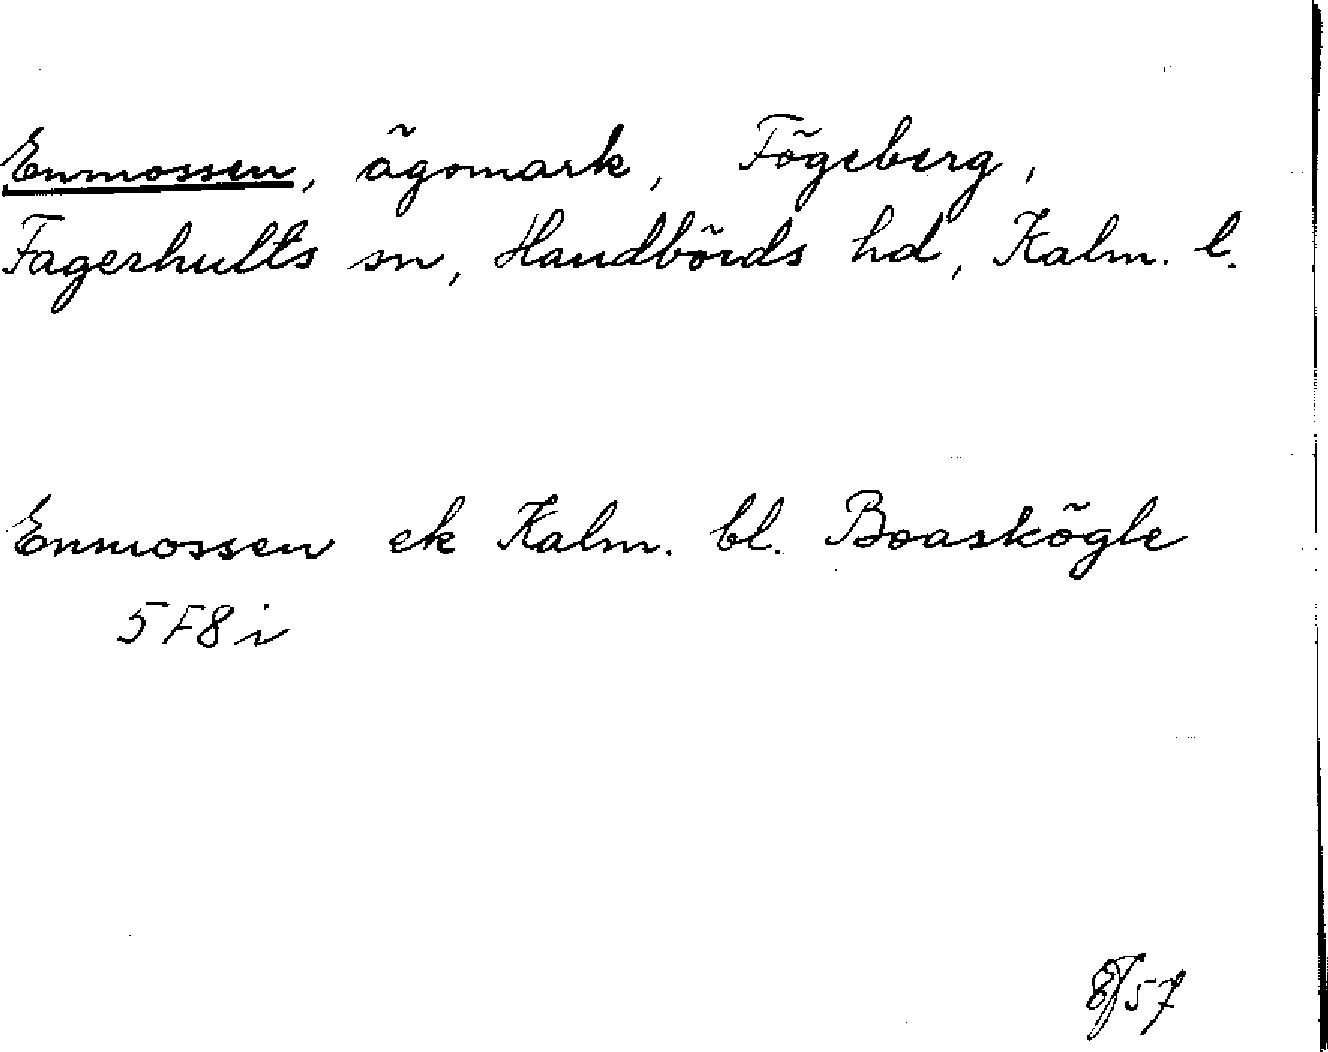 Enmossen, ägomark, Fögeberg,
Fagerhults sn, Handbörds hd, Kalm. l.
Enmossen ek Kalm. bl. Boaskögle
5F8i